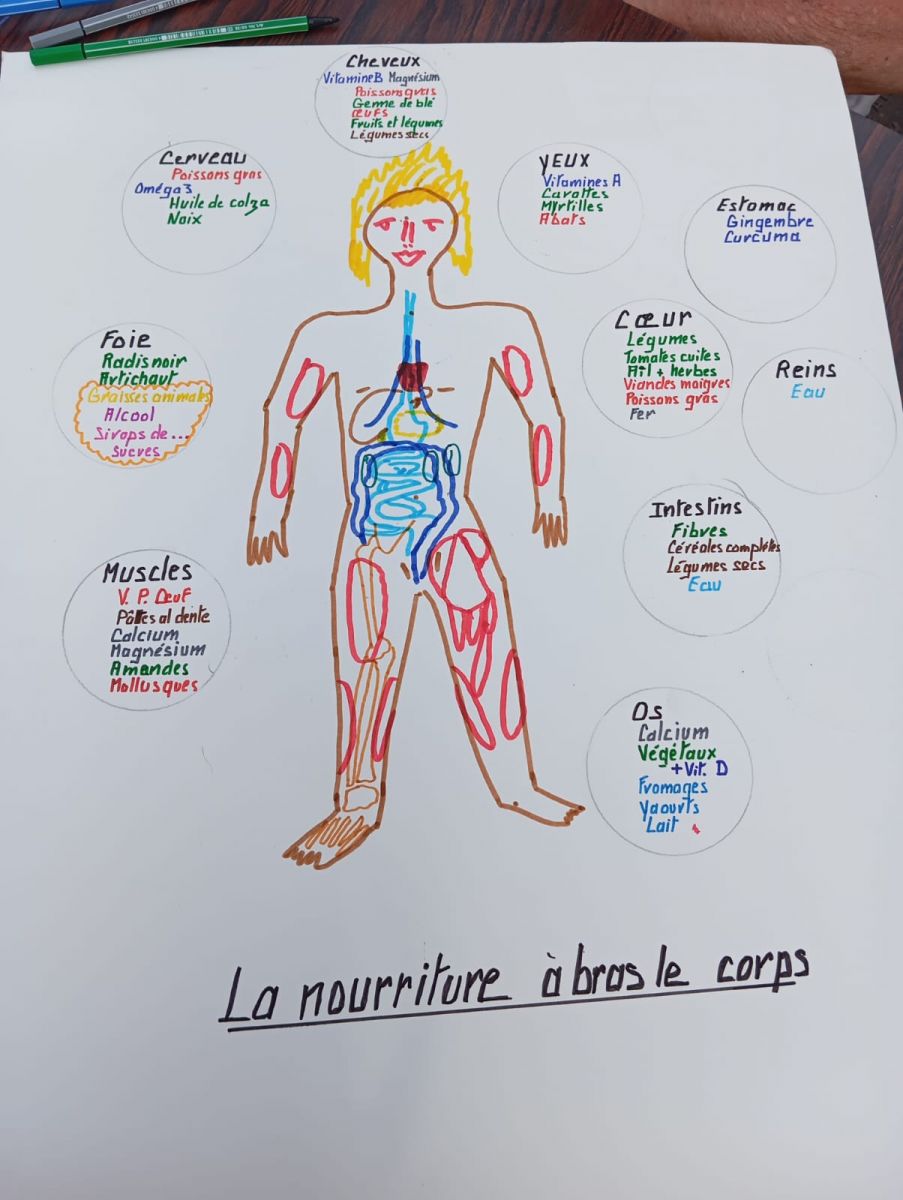 Cheveux
Vitamine B Magnésium
Poissons gras
Germe de blé
Œufs
Fruits et légumes
Légumes secs
Cerveau
Poissons gras
Oméga 3
Huile de colza
Noix
Yeux
Vitamines A
Carottes
Myrtilles
Abats
Estomac
Gingembre
Curcuma
Foie
Radis noir
Artichaut
Graisses animales
Alcool
Sirops de...
Sucres
Cœur
Légumes
Tomates cuites
Ail + herbes
Viandes maigres
Poissons gras
Fer
Reins
Eau
Intestins
Fibres
Céréales complètes
Légumes secs
Eau
Muscles
V. P. Oeuf
Pâtes al dente
Calcium
Magnésium
Amandes
Mollusques
Os
Calcium
Végétaux
+ Vit. D
Fromages
Yaourts
Lait
La nourriture à bras le corps